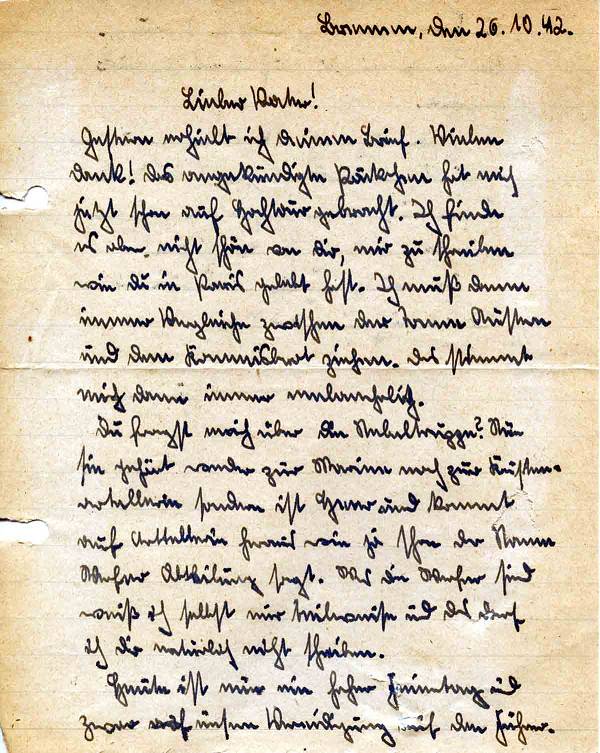 Bremen, den 26.10.42.
Lieber Vater!
Gestern erhielt ich deinen Brief. Vielen
Dank! Das angekündigte Päckchen hat mich
jetzt schon auf Hochtour gebracht. Ich finde
es aber nicht schön von dir, mir zu schreiben
wie du in Paris gelebt hast. Ich muß dann
immer Vergleiche zwischen den Austern
und dem Kommisbrot ziehen. Das stimmt
mich dann immer melancholig.
Du fragst mich über die Nebeltruppe? Nun
sie gehört weder zur Marine noch zur Küsten-
artellerie sondern ist Heer und kommt
auf Arttellerie heraus wie ja schon der Name
Werfer Abteilung sagt. Was die Werfer sind
weiß ich selbst nur teilweise und das darf
ich dir natürlich nicht schreiben.
Heute ist nun ein hoher Feiertag und
zwar unsere Vereidigung auf den Führer.